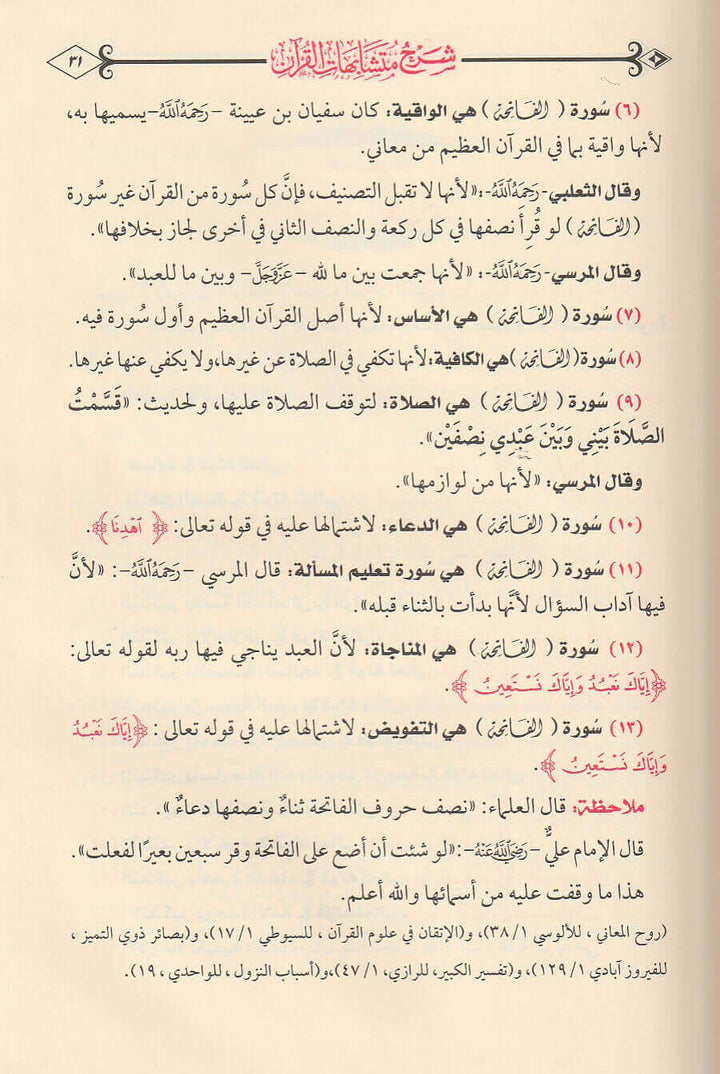 شَرْحُ مُتَشَابِهَاتِ القُرْآن
٣١
(٦) سُورة ( الفَاتِحَة ) هي الواقية: كان سفيان بن عيينة –رَحِمَهُ ٱللَّهُ– يسميها به،
لأنها واقية بما في القرآن العظيم من معاني.
وقال الثعلبي -رَحِمَهُ ٱللَّهُ-: «لأنها لا تقبل التصنيف، فإنَّ كل سُورة من القرآن غير سُورة
( الفَاتِحَة ) لو قُرِأَ نصفها في كل ركعة والنصف الثاني في أخرى لجاز بخلافها».
وقال المرسي -رَحِمَهُ ٱللَّهُ-: «لأنها جمعت بين ما لله –عَزَّوَجَلَّ– وبين ما للعبد».
(٧) سُورة ( الفَاتِحَة ) هي الأساس: لأنها أصل القرآن العظيم وأول سُورة فيه.
(٨) سُورة ( الفَاتِحَة ) هي الكافية: لأنها تكفي في الصلاة عن غيرها، ولا يكفي عنها غيرها.
(٩) سُورة ( الفَاتِحَة ) هي الصلاة: لتوقف الصلاة عليها، ولحديث: «قَسَّمْتُ
الصَّلَاةَ بَيْنِي وَبَيْنَ عَبْدِي نِصْفَيْن».
وقال المرسي: «لأنها من لوازمها».
(١٠) سُورة ( الفَاتِحَة ) هي الدعاء: لاشتمالها عليه في قوله تعالى: ﴿ ٱهْدِنَا ﴾.
(١١) سُورة ( الفَاتِحَة ) هي سُورة تعليم المسألة: قال المرسي –رَحِمَهُ ٱللَّهُ–: «لأنَّ
فيها آداب السؤال لأنَّها بدأت بالثناء قبله».
(١٢) سُورة ( الفَاتِحَة ) هي المناجاة: لأنَّ العبد يناجي فيها ربه لقوله تعالى:
﴿إِيَّاكَ نَعْبُدُ وَإِيَّاكَ نَسْتَعِينُ ﴾.
(١٣) سُورة ( الفَاتِحَة ) هي التفويض: لاشتمالها عليه في قوله تعالى : ﴿إِيَّاكَ نَعْبُدُ
وَإِيَّاكَ نَسْتَعِينُ ﴾.
ملاحظة: قال العلماء: «نصف حروف الفاتحة ثناءٌ ونصفها دعاءٌ ».
قال الإمام عليٌّ –رَضِيَ ٱللَّهُ عَنْهُ–: «لو شئت أن أضع على الفاتحة وقر سبعين بعيرًا لفعلت».
هذا ما وقفت عليه من أسمائها والله أعلم.
(روح المعاني ، للألوسي ٣٨/١)، و(الإتقان في علوم القرآن ، للسيوطي ١٧/١)، و(بصائر ذوي التميز ،
للفيروز آبادي ١٢٩/١)، و(تفسير الكبير، للرازي، ٤٧/١)،و(أسباب النزول ، للواحدي ، ١٩).